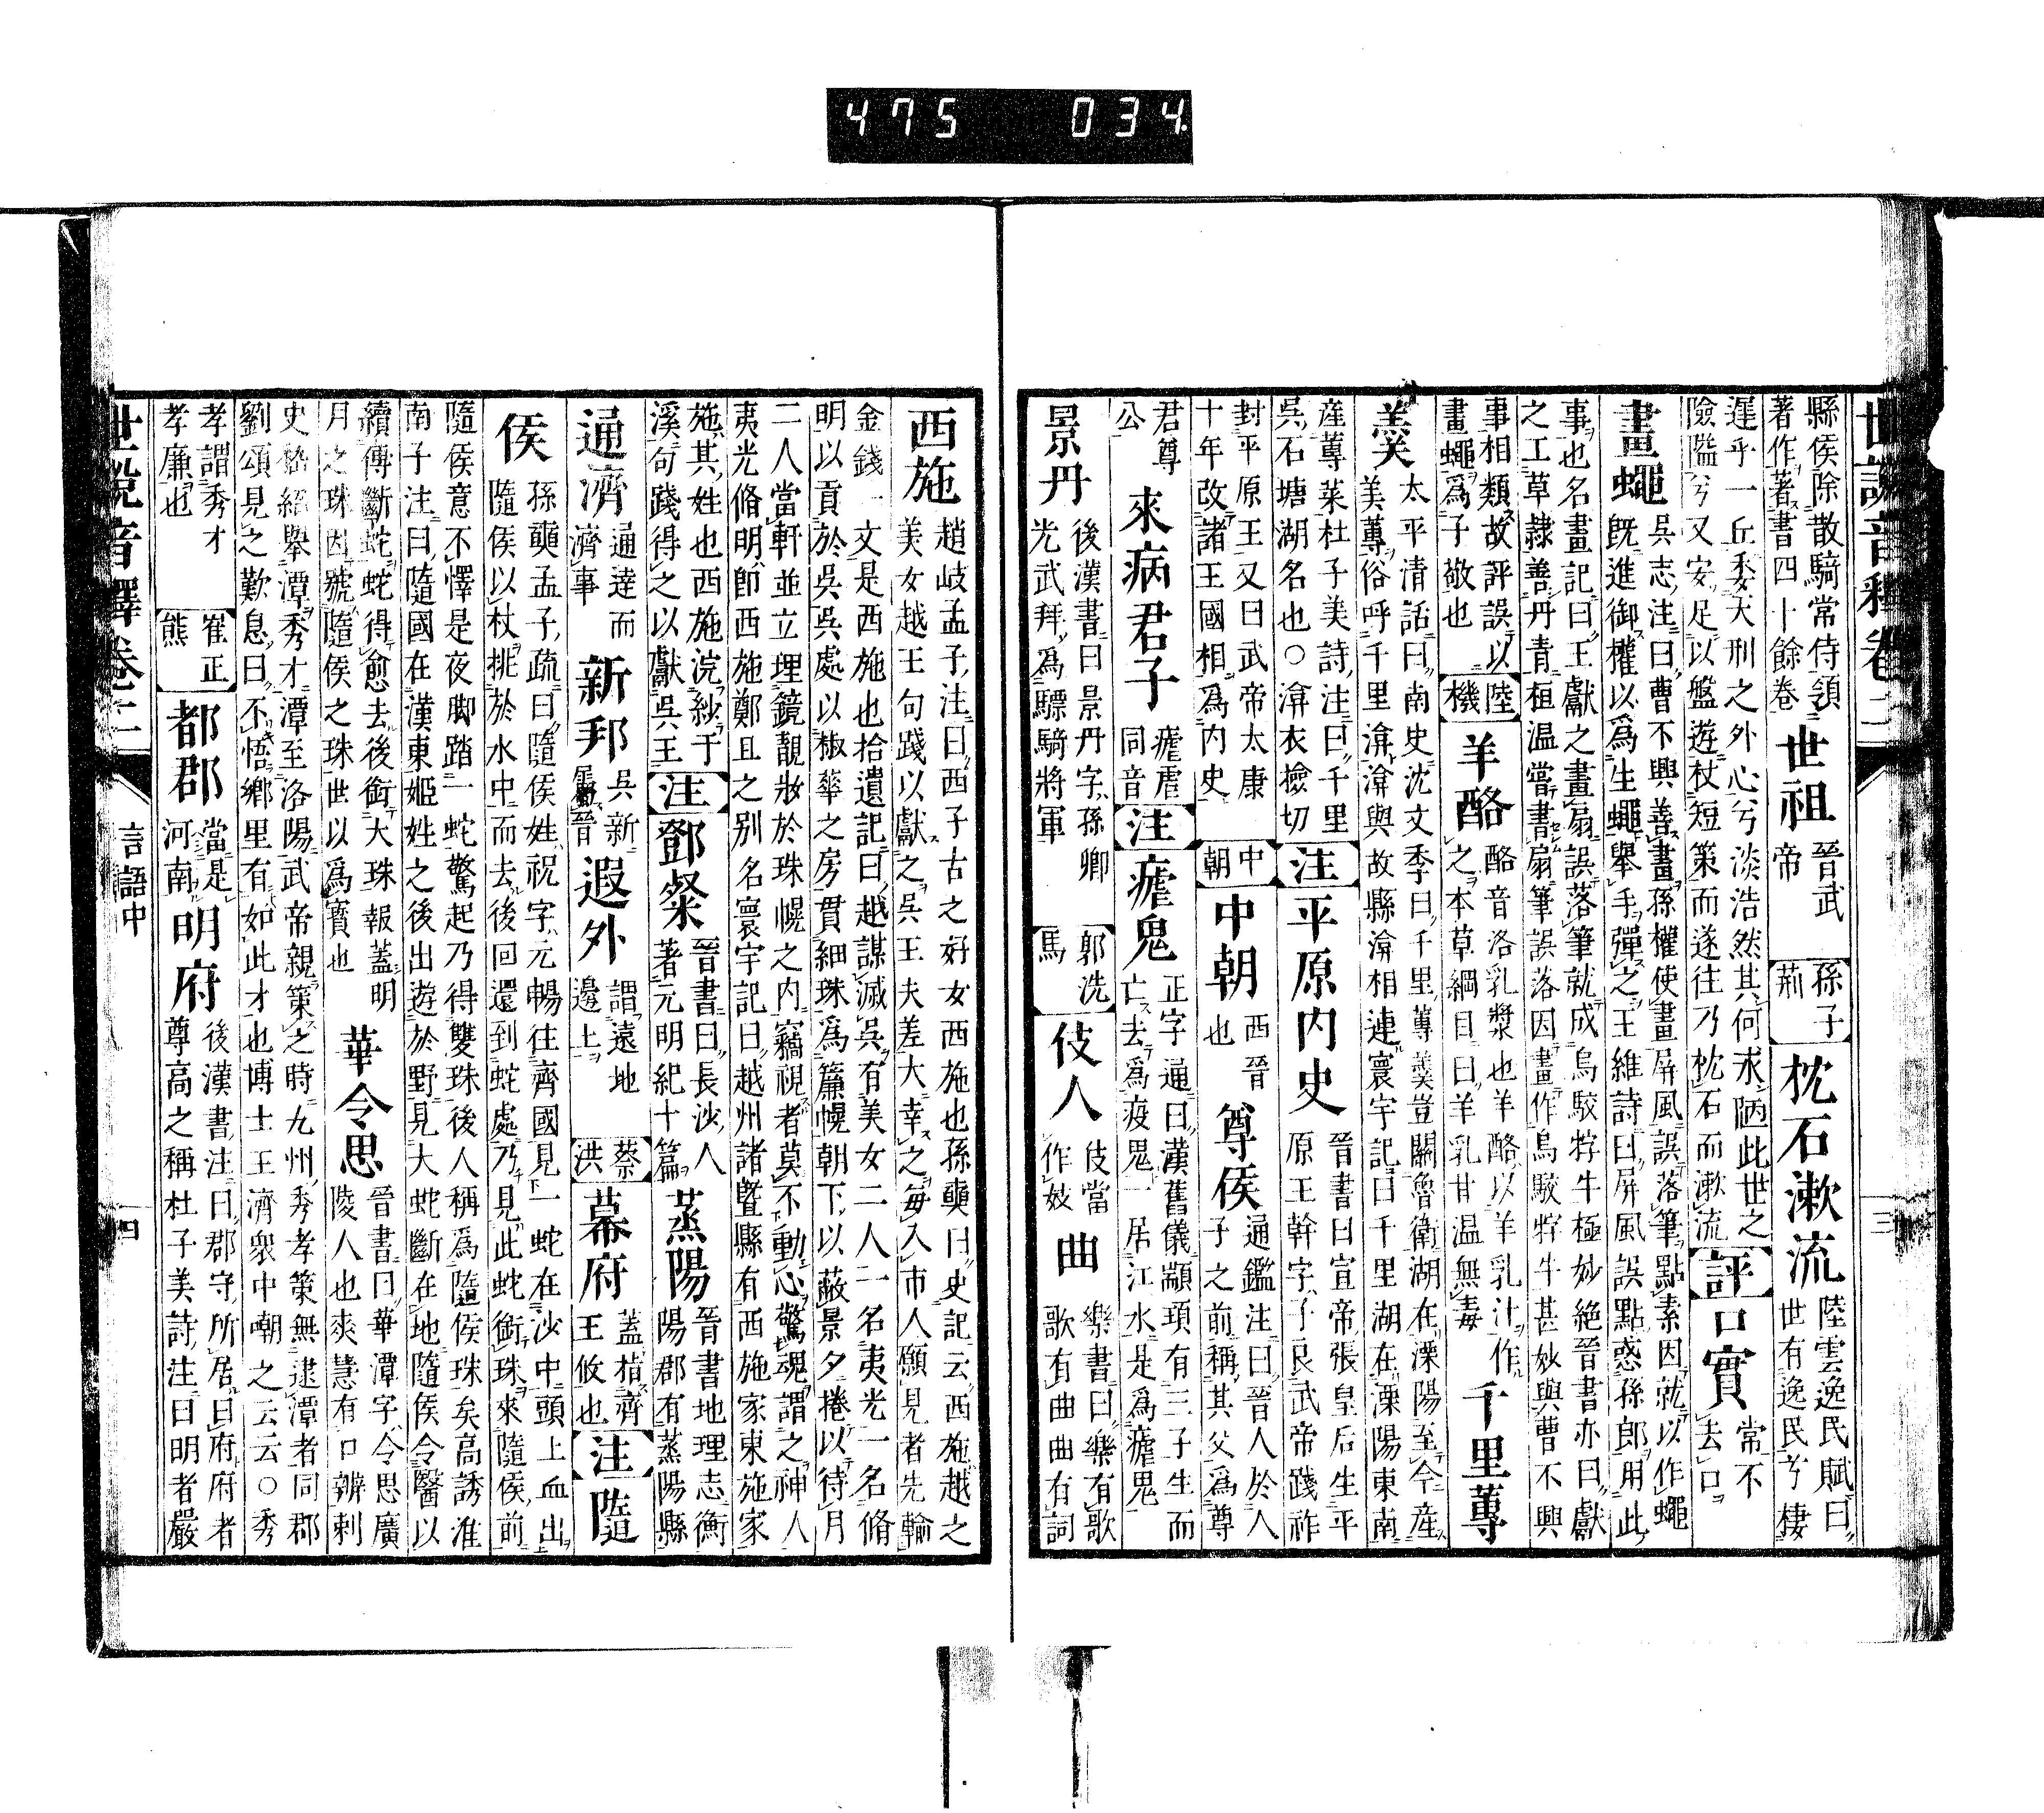 世說音釋卷二 三
縣侯除散騎常侍領著作著書四十餘卷 世祖 晉武帝 孫子荊 枕石漱流 陸雲逸民賦曰世有逸民兮棲
遲乎一丘委天刑之外心兮淡浩然其何求陋此世之險隘兮又安足以盤遊杖短策而遂往乃枕石而漱流 評 口實 常不去口
畫蠅 吳志注曰曹不興善畫孫權使畫屏風誤落筆點素因就以作蠅既進御權以爲生蠅舉手彈之王維詩曰屏風誤點惑孫郎用此
事也名畫記曰王獻之畫扇誤落筆就成烏駮牸牛極妙絕晉書亦曰獻之工草隷善丹青桓温嘗書扇筆誤落因畫作烏駮牸牛甚妙與曹不興
事相類故評誤以畫蠅爲子敬也 陸機 羊酪 酪音洛乳漿也羊酪以羊乳汁作之本草綱目曰羊乳甘温無毒 千里蓴
羹 太平清話曰南史沈文季曰千里蓴羹豈關魯衛湖在溧陽至今產美蓴俗呼千里渰渰與故縣渰相連寰宇記曰千里湖在溧陽東南
產蓴菜杜子美詩注曰千里吳石塘湖名也○渰衣撿切 注 平原內史 晉書曰宣帝張皇后生平原王幹字子良武帝踐祚
封平原王又曰武帝太康十年改諸王國相爲內史 中朝 中朝 西晉也 尊侯 通鑑注曰晉人於人子之前稱其父爲尊
君尊公 來病君子 瘧虐同音 注 瘧鬼 正字通曰漢舊儀顓頊有三子生而亡去爲疫鬼一居江水是爲瘧鬼
景丹 後漢書曰景丹字孫卿光武拜爲驃騎將軍 郭洗馬 伎人 伎當作妓 曲 樂書曰樂有歌歌有曲曲有詞
西施 趙岐孟子注曰西子古之好女西施也孫奭曰史記云西施越之美女越王句踐以獻之吳王夫差大幸之每入市人願見者先輸
金錢一文是西施也拾遺記曰越謀滅吳有美女二人一名夷光一名脩明以貢於吳吳處以椒華之房貫細珠爲簾幌朝下以蔽景夕捲以待月
二人當軒並立理鏡靚妝於珠幌之內竊視者莫不動心驚魂謂之神人夷光脩明卽西施鄭旦之别名寰宇記曰越州諸曁縣有西施家東施家
施其姓也西施浣紗于溪句踐得之以獻吳王 注 鄧粲 晉書曰長沙人著元明紀十篇 蒸陽 晉書地理志衡陽郡有蒸陽縣
通濟 通達而濟事 新邦 吳新屬晉 遐外 謂遠地邊上 蔡洪 幕府 蓋指濟王攸也 注 隨
侯 孫奭孟子疏曰隨侯姓祝字元暢往齊國見一蛇在沙中頭上血出隨侯以杖挑於水中而去後回還到蛇處乃見此蛇銜珠來隨侯前
隨侯意不懌是夜脚踏一蛇驚起乃得雙珠後人稱爲隨侯珠矣高誘淮南子注曰隨國在漢東姬姓之後出遊於野見大蛇斷在地隨侯令醫以
續傳斷蛇蛇得愈去後銜大珠報蓋明月之珠因號隨侯之珠世以爲寶也 華令思 晉書曰華潭字令思廣陵人也爽慧有口辨刺
史嵇紹舉潭秀才潭至洛陽武帝親策之時九州秀孝策無逮潭者同郡劉頌見之歎息曰不悟鄉里有如此才也博士王濟衆中嘲之云云○秀
孝謂秀才孝廉也 崔正熊 都郡 當是河南 明府 後漢書注曰郡守所居曰府府者尊高之稱杜子美詩注曰明者嚴
世說音釋卷二 言語中 四
475 034